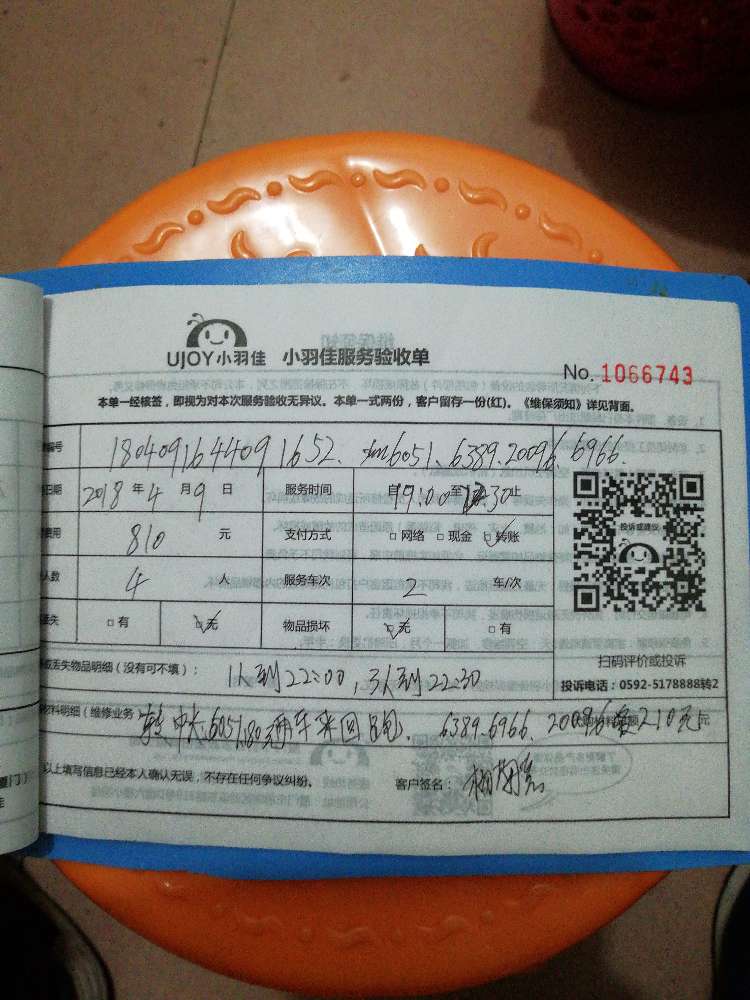 UJOY小羽佳 小羽佳服务验收单
No. 1066743
本单一经核签，即视为对本次服务验收无异议。本单一式两份，客户留存一份(红)。《维保须知》详见背面。
编号 1804091644091652. 6051. 6389. 20096. 6966.
日期 2018 年 4 月 9 日 服务时间 自19:00至 :30止
费用 810 元 支付方式 □ 网络 □ 现金 ☑ 转账
投诉或建议
人数 4 人 服务车次 2 车/次
遗失 □ 有 ☑ 无 物品损坏 ☑ 无 □ 有
扫码评价或投诉
或丢失物品明细（没有可不填）： 1人到22:00，3人到22:30
投诉电话：0592-5178888转2
材料明细（维修业务） 6051. 180元 车来回 6389. 6966. 20096 210元 元
以上填写信息已经本人确认无误，不存在任何争议纠纷。 客户签名：